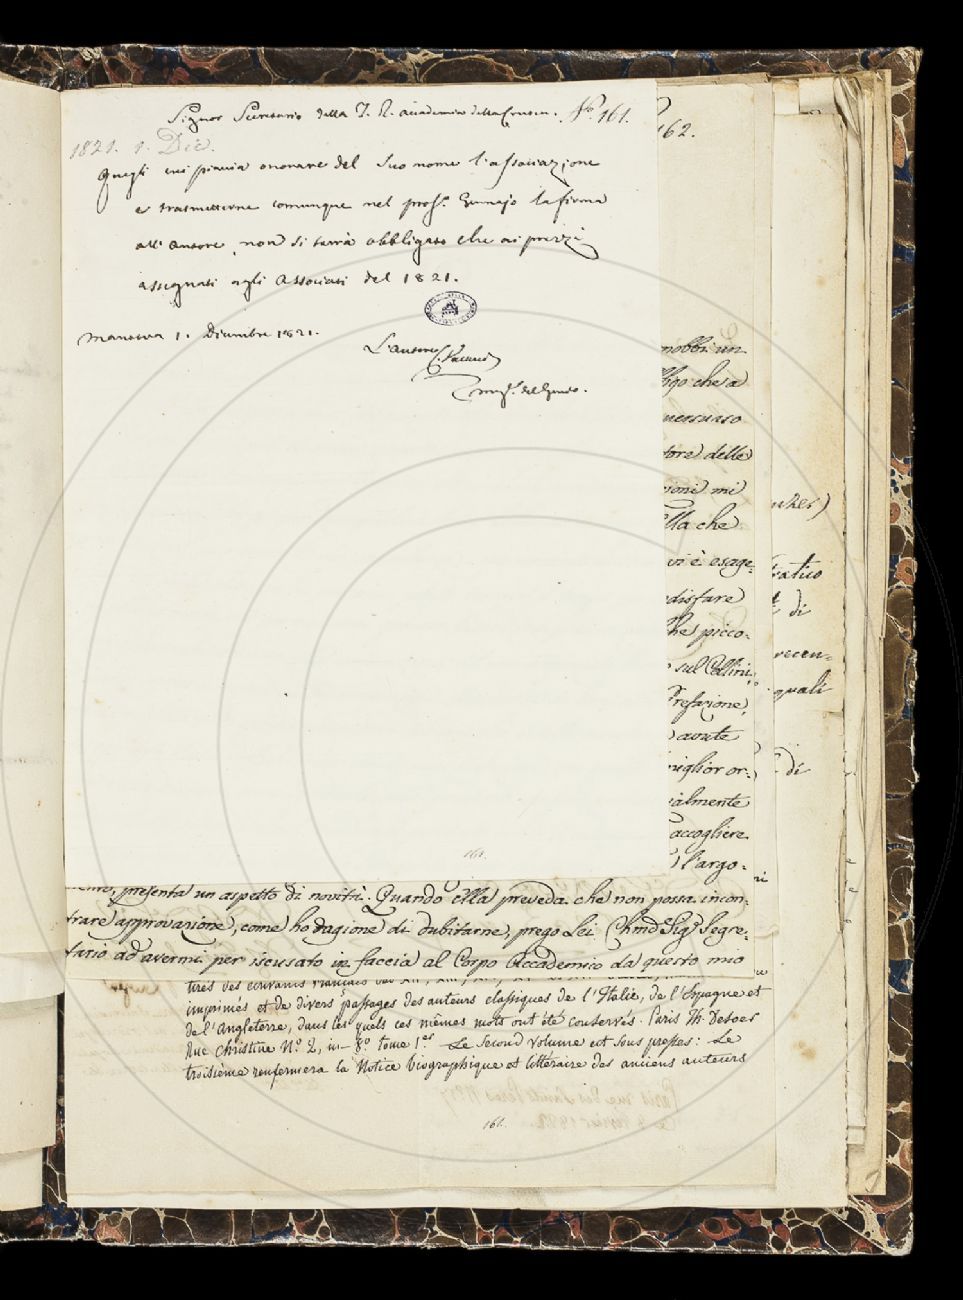 Signor Secretario della I. R. Accademia della Crusca. Nº. 161.
1821. 1. Dic.
Quegli cui piaccia onorare del suo nome l'associazione
e trasmetterne comunque nel pross.º Gennajo la firma
all'Autore, non si terrà obbligato che ai prezzi
assegnati agli Associati del 1821.
Mantova 1. Dicembre 1821.
L'autore
del Genio.
161.
162.
nobbi un
ligo che a
persuaso
tore delle
zioni mi
ella che
vi è esage-
disfare
he picco-
sul Collini,
Prefazione,
avute
miglior or-
ialmente
accogliere
l'argo-
ratico
di
recen-
quali
di
mento, presenta un aspetto di novità. Quando ella preveda che non possa incon-
trare approvazione, come ho ragione di dubitarne, prego Lei Chmo Sigr Segre-
tario ad avermi per iscusato in faccia al Corpo Accademico da questo mio
tirés des écrivains français
imprimés et de divers passages des auteurs classiques de l'Italie, de l'Espagne et
de l'Angleterre, dans lesquels ces mêmes mots ont été conservés. Paris Th. Desoer
Rue Christine Nº 2, in-8º tome 1er Le second volume est sous presses: Le
troisième renfermera la Notice biographique et littéraire des anciens auteurs
161.